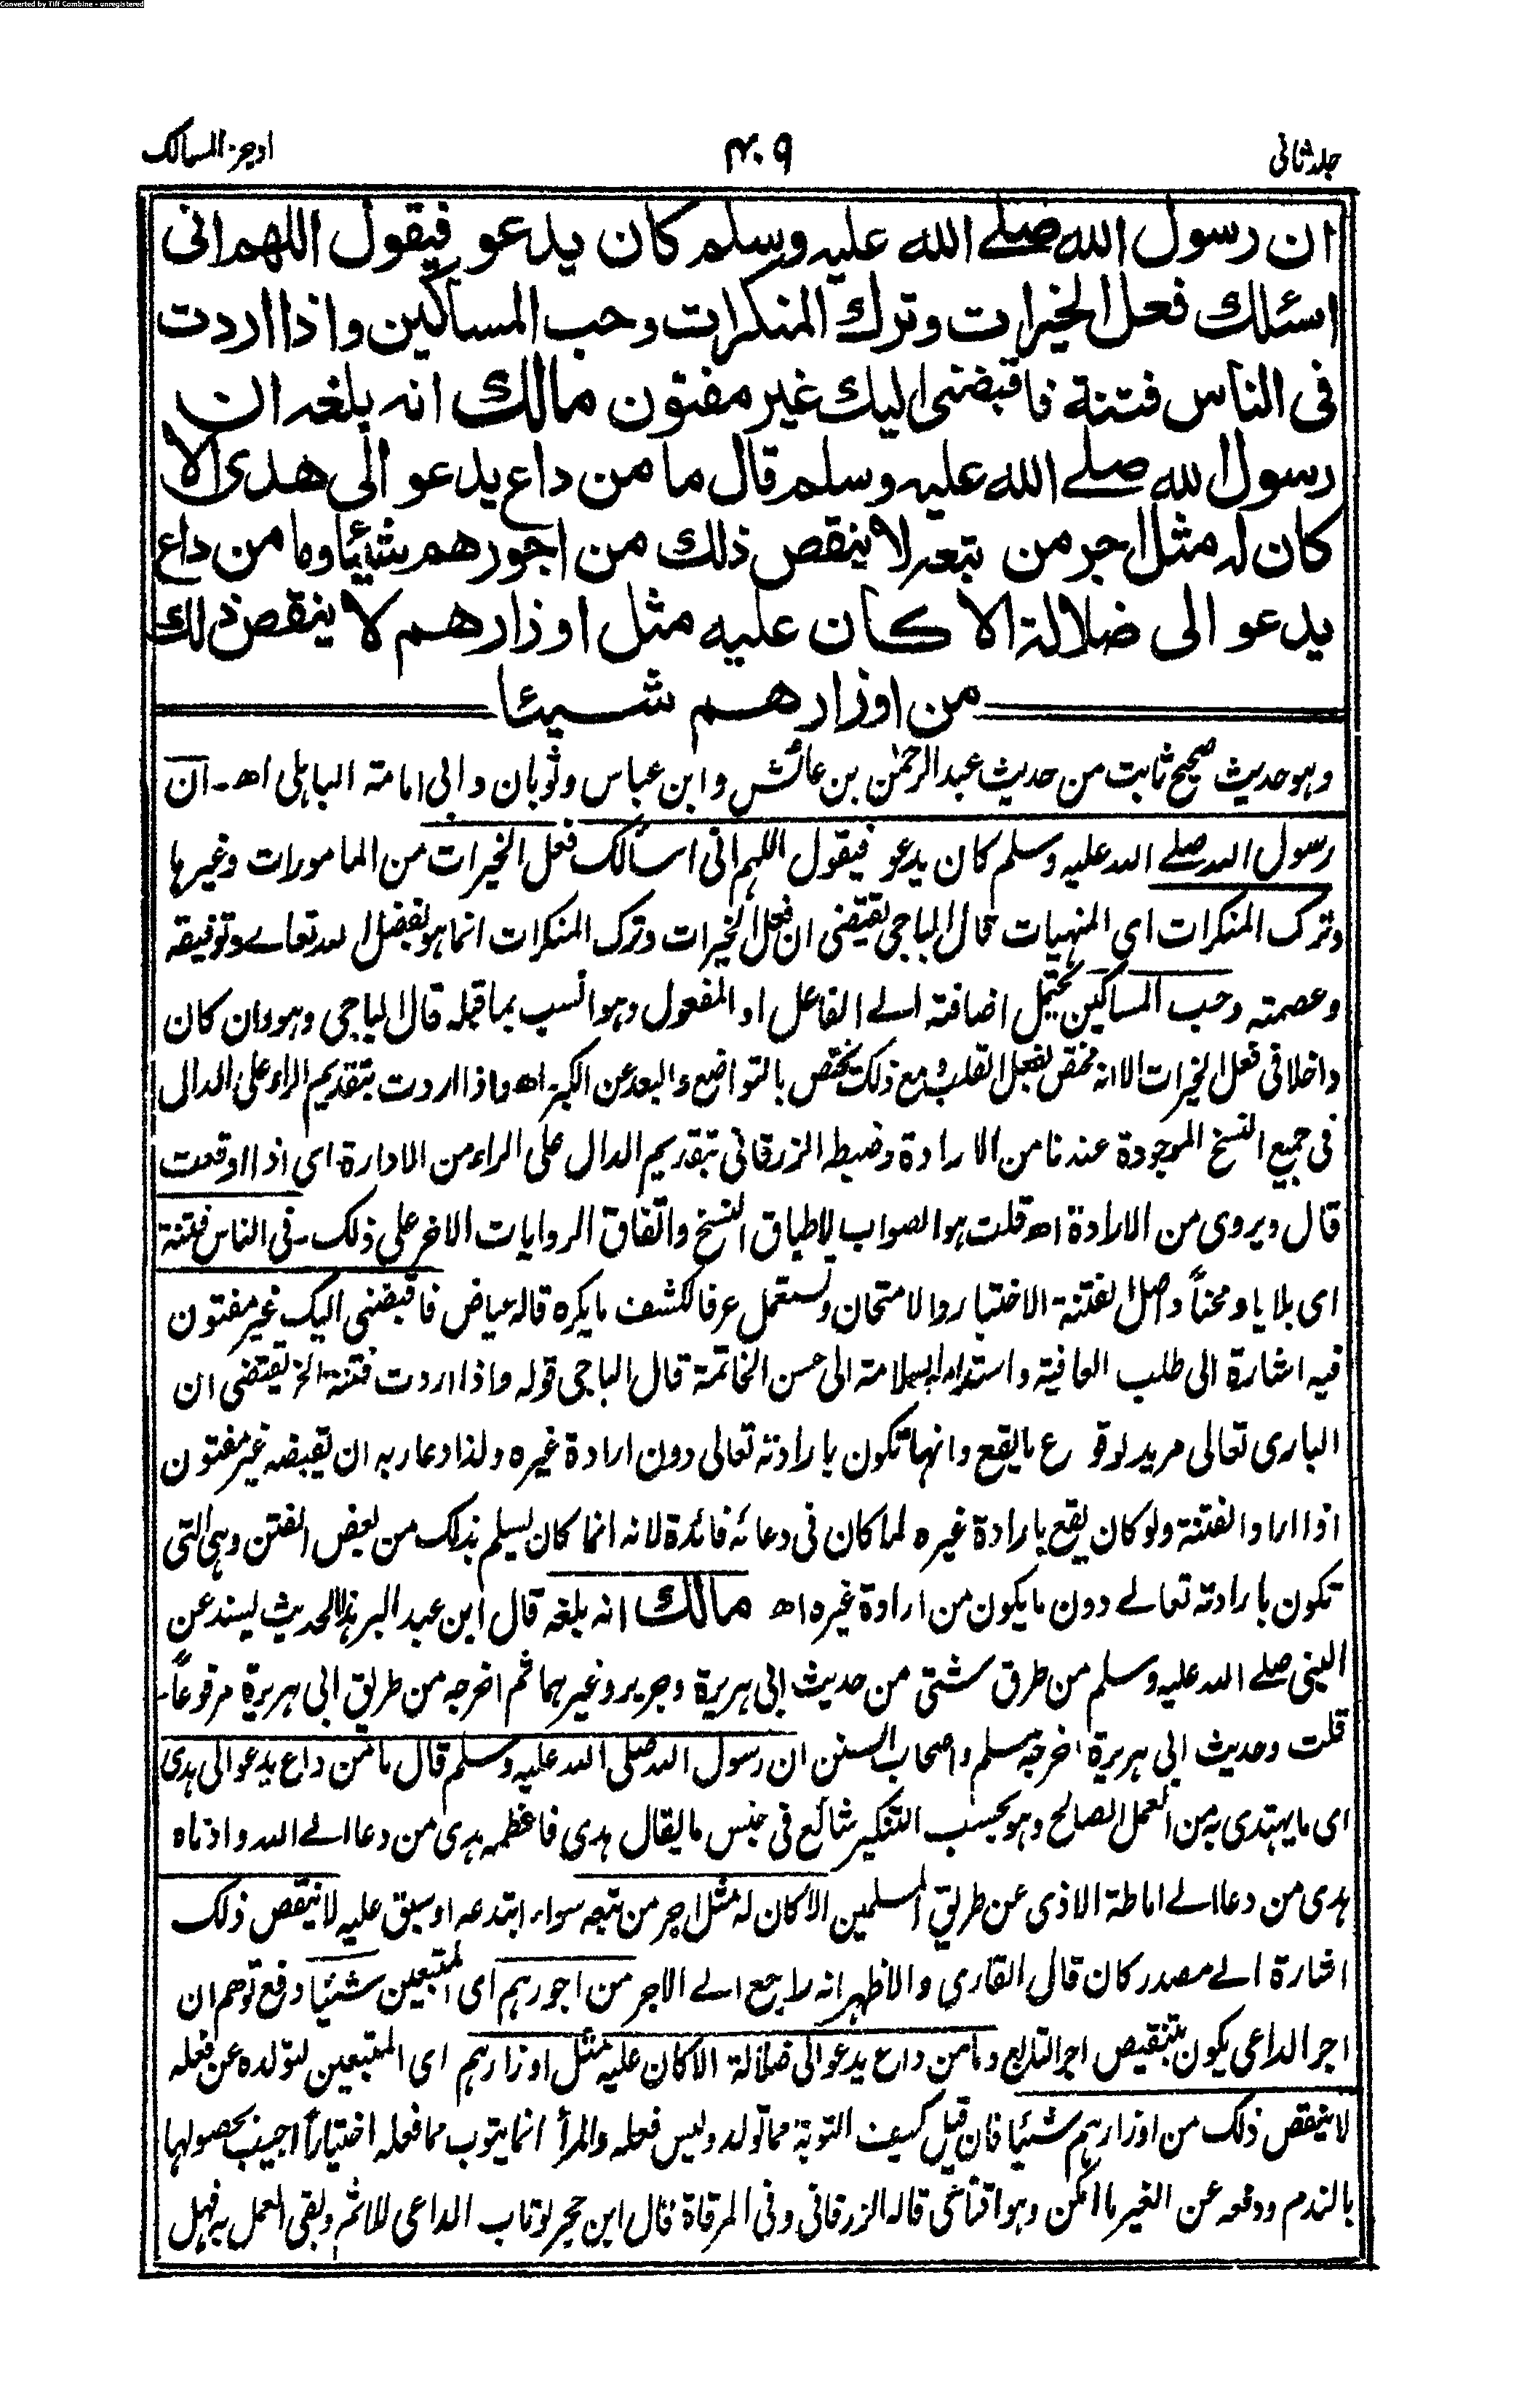 Converted by Tiff Combine - unregistered
جلد ثانی
۴۰۹
اوجز المسالک
ان رسول الله صلے الله علیہ وسلم کان یدعو فیقول اللهم انی
اسئلك فعل الخیرات وترك المنکرات وحب المساکین واذا اردت
فی الناس فتنة فاقبضنی الیك غیر مفتون مالك انہ بلغہ ان
رسول الله صلے الله علیہ وسلم قال ما من داع یدعو الی هدی الا
کان لہ مثل اجر من تبعہ لا ینقص ذلك من اجورهم شیئا وما من داع
یدعو الی ضلالة الا کان علیه مثل اوزارهم لا ینقص ذلك
من اوزارهم شیئا
وہو حدیث صحیح ثابت من حدیث عبد الرحمٰن بن عائش وابن عباس وثوبان وابی امامۃ الباہلی اھ۔ ان
رسول اللہ صلے اللہ علیہ وسلم کان یدعو فیقول اللہم انی اسألک فعل الخیرات من المامورات وغیرہا
وترک المنکرات ای المنہیات قال الباجی یقتضی ان فعل الخیرات وترک المنکرات انما ہو بفضل اللہ تعالے وتوفیقہ
وعصمتہ وحب المساکین یحتمل اضافتہ الے الفاعل او المفعول وہو انسب بما قبلہ قال الباجی وہو وان کان
داخلا فی فعل الخیرات الا انہ مختص بفعل القلب ومع ذلک یختص بالتواضع والبعد عن الکبر اھ واذا اردت بتقدیم الراء علی الدال
فی جمیع النسخ الموجودۃ عندنا من الارادۃ وضبطہ الزرقانی بتقدیم الدال علی الراء من الادارۃ ای اذا اوقعت
قال ویروی من الارادۃ اھ قلت ہو الصواب لاطباق النسخ واتفاق الروایات الاخر علی ذلک۔ فی الناس فتنۃ
ای بلایا ومحناً واصل الفتنۃ الاختبار والامتحان وتستعمل عرفا لکشف ما یکرہ قالہ عیاض فاقبضنی الیک غیر مفتون
فیہ اشارۃ الی طلب العافیۃ واستدامۃ السلامۃ الی حسن الخاتمۃ قال الباجی قولہ واذا اردت فتنۃ الخ یقتضی ان
الباری تعالی مرید لوقوع ما یقع وانہا تکون بارادتہ تعالی دون ارادۃ غیرہ ولذا دعا ربہ ان یقبضہ غیر مفتون
اذا اراد الفتنۃ ولو کان یقع بارادۃ غیرہ لما کان فی دعائہ فائدۃ لانہ انما کان یسلم بذلک من بعض الفتن وہی التی
تکون بارادتہ تعالے دون ما یکون من ارادۃ غیرہ اھ مالك انہ بلغہ قال ابن عبد البر ہذا الحدیث یسند عن
النبی صلے اللہ علیہ وسلم من طرق شتی من حدیث ابی ہریرۃ وجریر وغیرہما ثم اخرجہ من طریق ابی ہریرۃ مرفوعاً۔
قلت وحدیث ابی ہریرۃ اخرجہ مسلم واصحاب السنن ان رسول اللہ صلی اللہ علیہ وسلم قال ما من داع یدعو الی ہدی
ای ما یہتدی بہ من العمل الصالح وہو بحسب التنکیر شائع فی جنس ما یقال ہدی فاعظمہ ہدی من دعا الے اللہ وادناہ
ہدی من دعا الے اماطۃ الاذی عن طریق المسلمین الا کان لہ مثل اجر من تبعہ سواء ابتدعہ او سبق علیہ لا ینقص ذلک
اشارۃ الے مصدر کان قال القاری والاظہر انہ راجع الے الاجر من اجورہم ای المتبعین شیئا دفع توہم ان
اجر الداعی یکون بتنقیص اجر التابع وما من داع یدعو الی ضلالۃ الا کان علیہ مثل اوزارہم ای المتبعین لتولدہ عن فعلہ
لا ینقص ذلک من اوزارہم شیئا فان قیل کیف التوبۃ مما تولد ولیس فعلہ والمرأ انما یتوب مما فعلہ اختیاراً اجیب بحصولہا
بالندم ودفعہ عن الغیر ما امکن وہو اقناعی قالہ الزرقانی وفی المرقاۃ قال ابن حجر لو تاب الداعی للاثم وبقی العمل بہ فہل